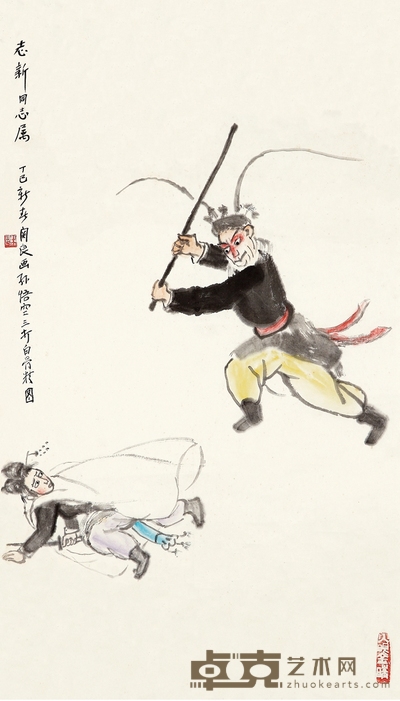 志新同志属
丁巳新春关良画孙悟空三打白骨精图
卓克艺术网
www.zhuokearts.com